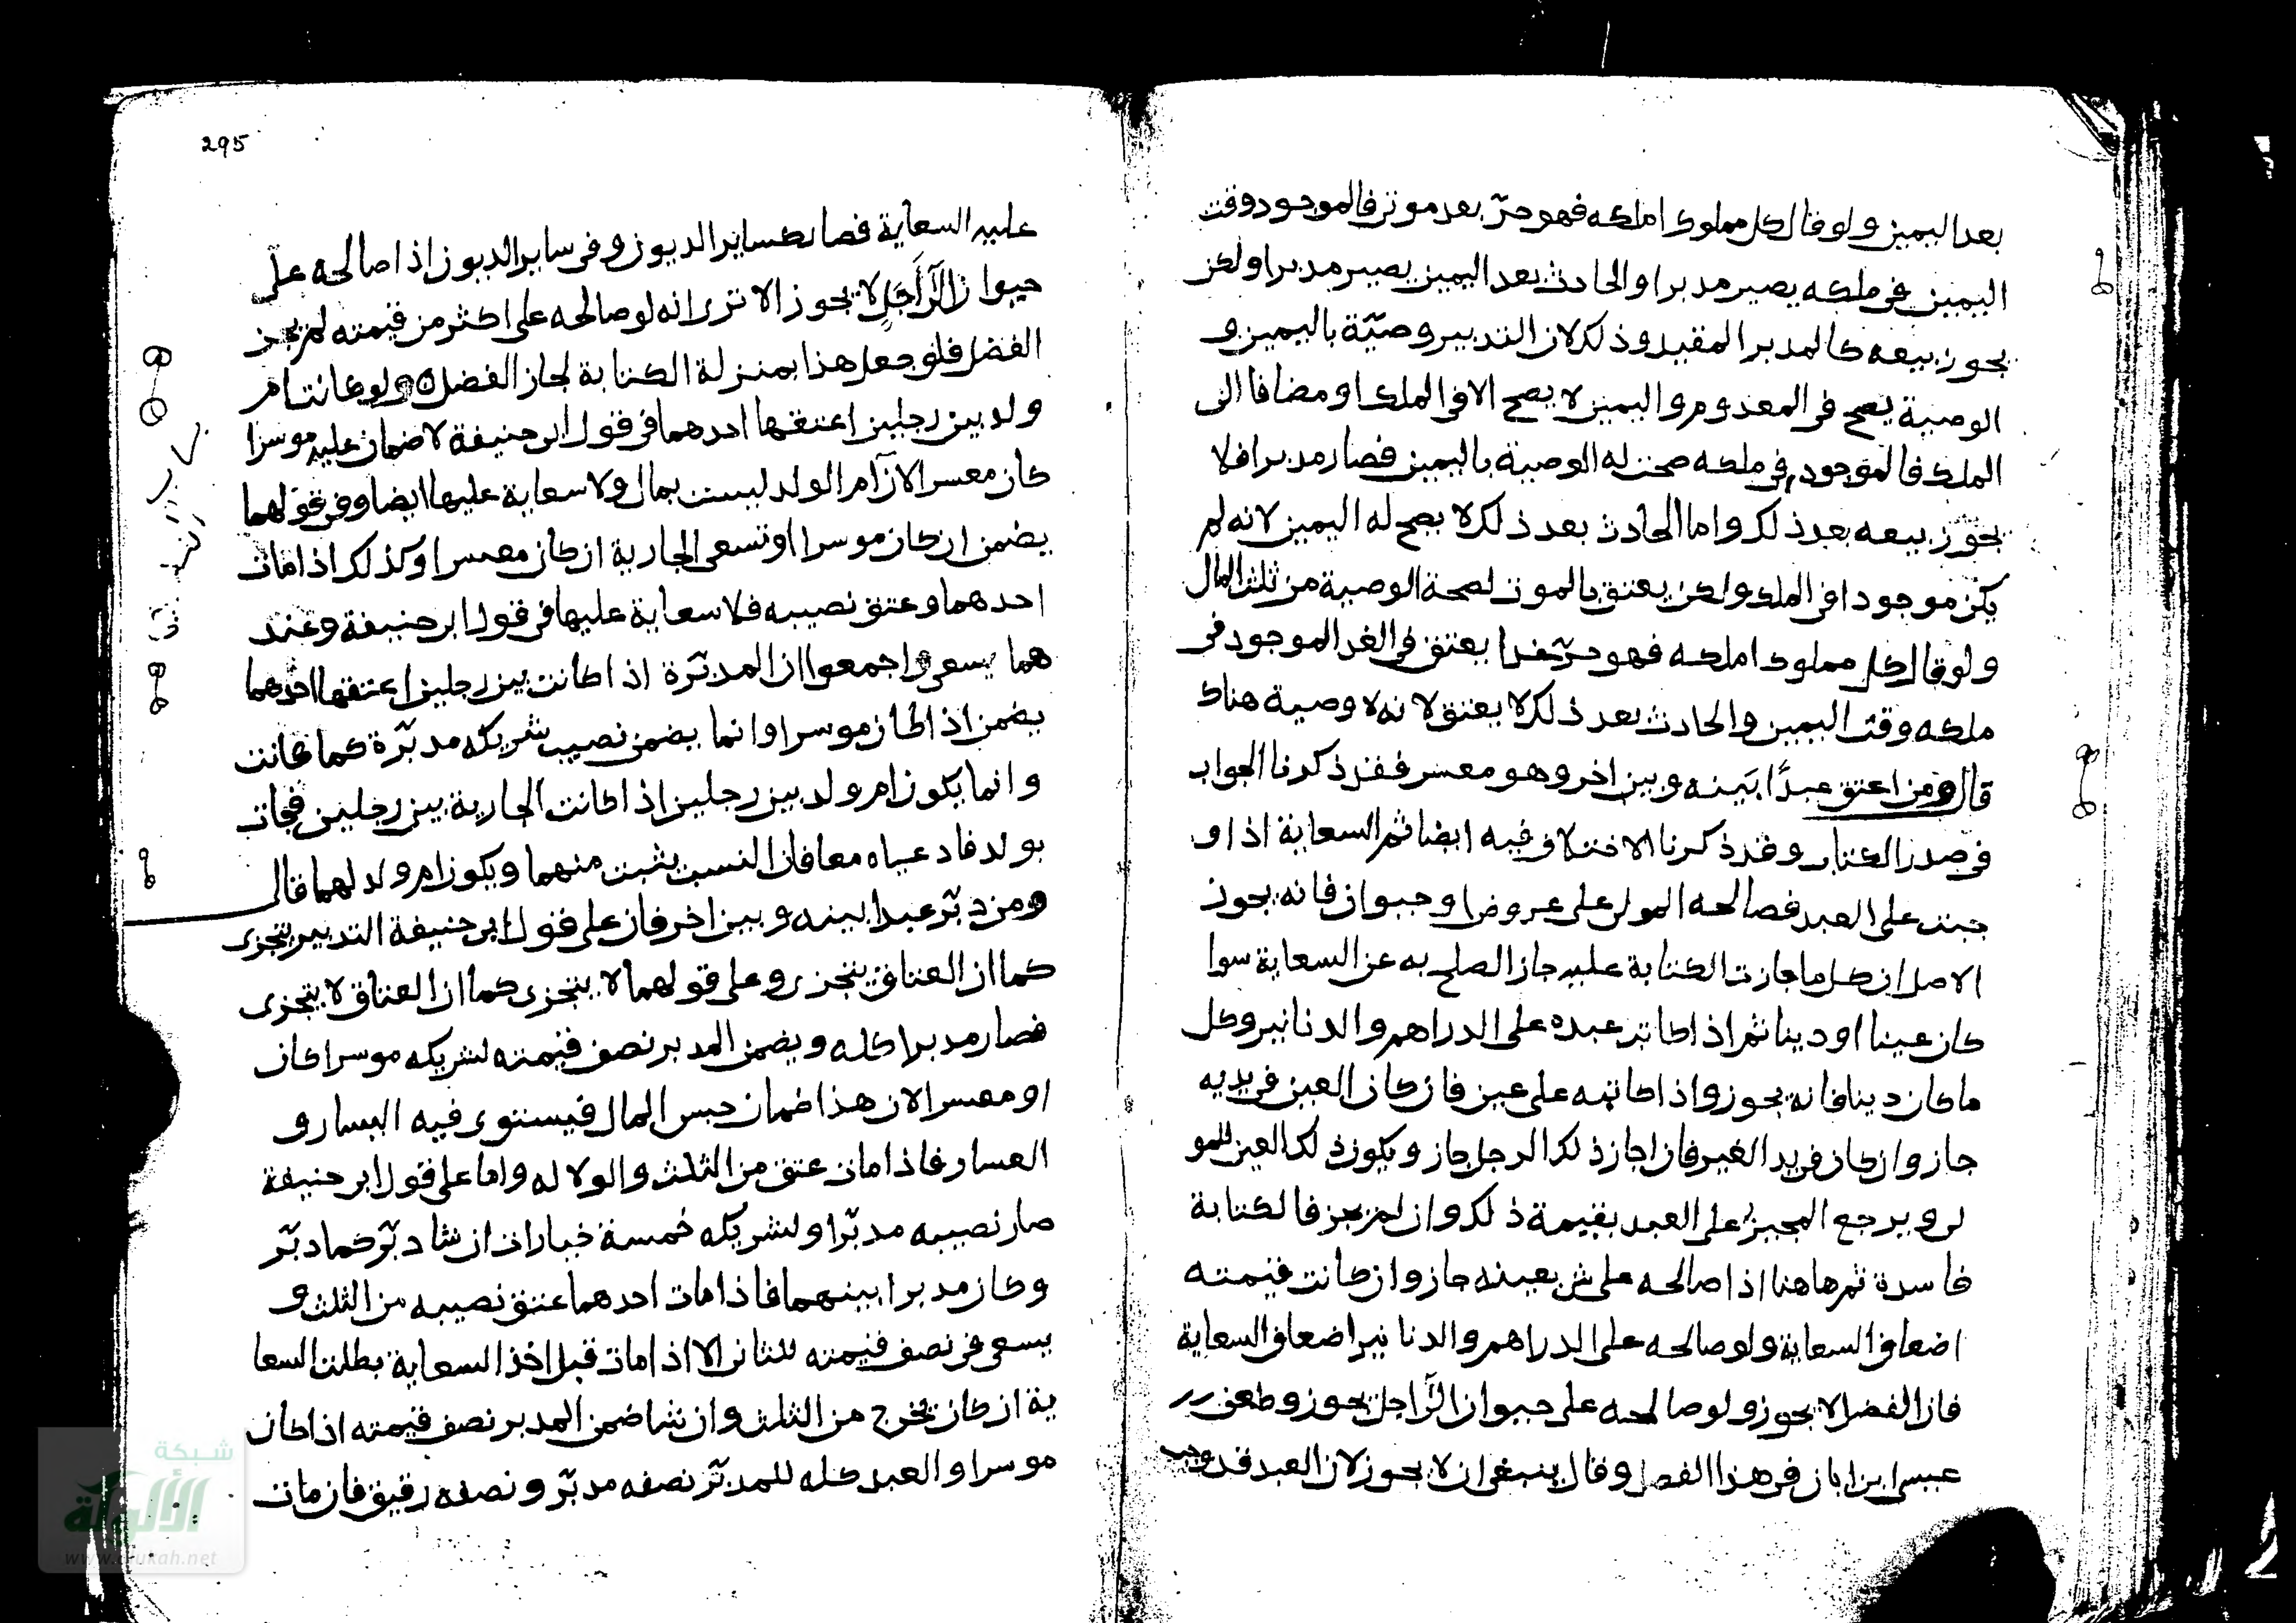 بعد اليمين ولو قال كل مملوك املكه فهو حرّ بعد موتى فالموجود وقت
اليمين فى ملكه يصير مدبرا والحادث بعد اليمين يصير مدبرا ولكن
يجوز بيعه كالمدبر المقيد وذلك لان التدبير وصيّة باليمين و
الوصية يصح فى المعدوم واليمين لا يصح الا فى الملك او مضافا الى
الملك فالموجود فى ملكه صحت له الوصية باليمين فصار مدبرا فلا
يجوز بيعه بعد ذلك واما الحادث بعد ذلك لا يصح له اليمين لانه لم
يكن موجودا فى الملك ولكن يعتق بالموت لصحة الوصية من ثلث المال
ولو قال كل مملوك املكه فهو حرّ غدا يعتق فى الغد الموجود فى
ملكه وقت اليمين والحادث بعد ذلك لا يعتق لانه لا وصية هناك
قال ومن اعتق عبدًا بَينه وبين اخر وهو معسر فقد ذكرنا الجواب
فى صدر الكتاب وقد ذكرنا الاختلاف فيه ايضا ثم السعاية اذا و
جبت على العبد فصالحه المولى على عروض او حيوان فانه يجوز
الاصل ان كل ما جازت الكتابة عليه جاز الصلح به عن السعاية سوا
كان عينا او دينا ثم اذا كاتب عبده على الدراهم والدنانير وكل
ما كان دينا فانه يجوز واذا كاتبه على عين فان كان العين فى يديه
جاز وان كان فى يد الغير فان اجاز ذلك الرجل جاز ويكون ذلك العين للمو
لى ويرجع المجيز على العبد بقيمة ذلك وان لم يجز فالكتابة
فاسدة ثم هاهنا اذا صالحه على شى بعينه جاز وان كانت قيمته
اضعاف السعاية ولو صالحه على الدراهم والدنانير اضعاف السعاية
فان الفضل لا يجوز ولو صالحه على حيوان الى اجل يجوز وطعن
عيسى ابن ابان فى هذا الفصل وقال ينبغى ان لا يجوز لان العبد قد وجب
295
عليه السعاية فصار كساير الديون وفى ساير الديون اذا صالحه على
حيوان الى اَجَلٍ لا يجوز الا ترى انه لو صالحه على اكثر من قيمته لم يجز
الفضل فلو جعل هذا بمنزلة الكتابة لجاز الفضل ولو كانت ام
ولد بين رجلين اعتقها احدهما فى قول ابى حنيفة لا ضمان عليه موسرا
كان معسر الان ام الولد ليست بمال ولا سعاية عليها ايضا وفى قولهما
يضمن ان كان موسرا او تسعى الجارية ان كان معسرا وكذلك اذا مات
احدهما وعتق نصيبه فلا سعاية عليها فى قول ابى حنيفة وعند
هما يسعى واجمعوا ان المدبّرة اذا كانت بين رجلين اعتقها احدهما
يضمن اذا كان موسرا وانما يضمن نصيب شريكه مدبّرة كما كانت
وانما يكون ام ولد بين رجلين اذا كانت الجارية بين رجلين فجات
بولد فادعياه معا فان النسب يثبت منهما ويكون ام ولد لهما قال
ومن دبّر عبدا بينه وبين اخر فان على قول ابى حنيفة التدبير يتجزى
كما ان العتاق يتجزى وعلى قولهما لا يتجزى كما ان العتاق لا يتجزى
فصار مدبرا كله ويضمن المدبر نصف قيمته لشريكه موسرا كان
او معسر الان هذا ضمان حبس المال فيستوى فيه اليسار و
العسار فاذا مات عتق من الثلث والولا له واما على قول ابى حنيفة
صار نصيبه مدبّرا ولشريكه خمسة خيارات ان شا دبّر كما دبّر
وكان مدبرا بينهما فاذا مات احدهما عتق نصيبه من الثلث و
يسعى فى نصف قيمته للثانى الا اذا مات قبل اخذ السعاية بطلت السعا
ية ان كان يخرج من الثلث وان شا ضمن المدبر نصف قيمته اذا كان
موسرا والعبد كله للمدبّر نصفه مدبّر ونصفه رقيق فان مات
شبكة
الألوكة
www.alukah.net